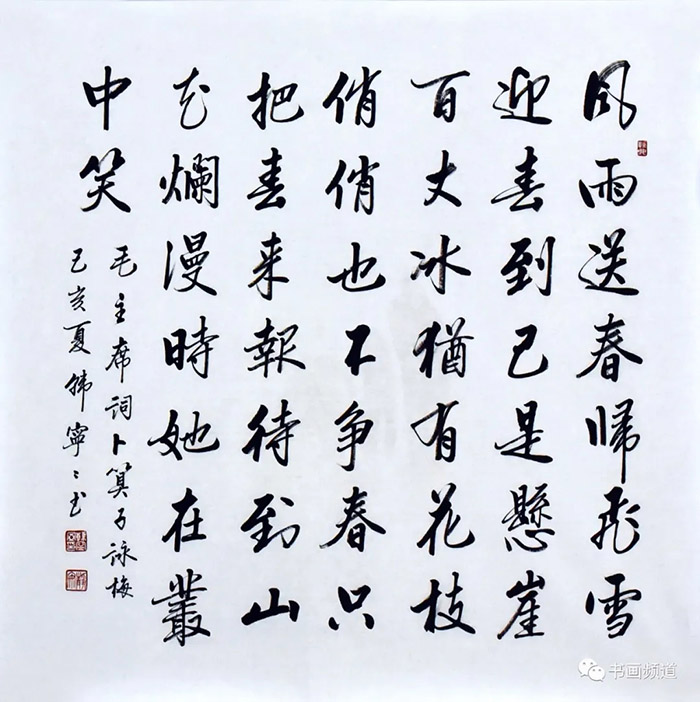 风雨送春歸飛雪
迎春到已是懸崖
百丈冰猶有花枝
俏俏也不争春只
把春来報待到山
花爛漫時她在叢
中笑
毛主席詞卜算子詠梅
己亥夏韩寧〻书
书画频道